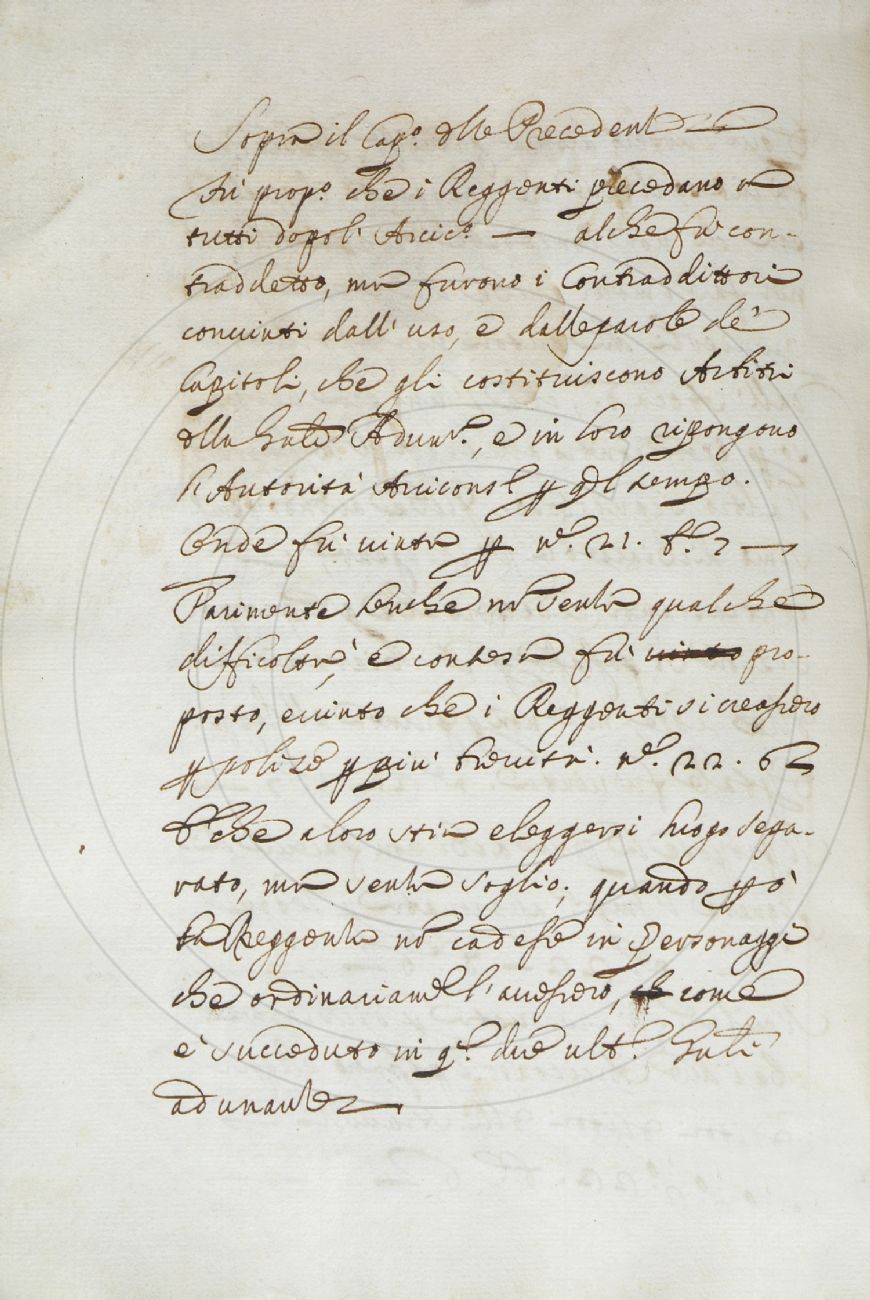 Sopra il Cap.º dlle Precedenze
Fù prop.º che i Reggenti precedano a
tutti dopo l'Arcic.º — al che fù con-
traddetto, ma furono i Contraddittori
convinti dall'uso, e dalle parole de'
Capitoli, che gli costituiscono Arbitri
dlla Adun.ª, e in loro ripongono
l'Autorità Arciconsl p ql tempo.
Onde fù vinta p n.i 21. f.e 7 —
Parimente benche nò senza qualche
difficoltà, e contesa fù vinto pro-
posto, e vinto che i Reggenti si creassero
p polize p più brevità. n.i 22. 6
che a loro stia eleggersi luogo sepa-
rato, ma senza soglio; quando p ò
la Reggenza nò cadesse in Personaggi
che ordinariam.e l'avessero, ch come
e' succeduto in q.e due ult.e
adunanze.